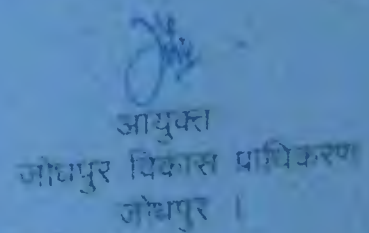 आयुक्त
जोधपुर विकास प्राधिकरण
जोधपुर ।